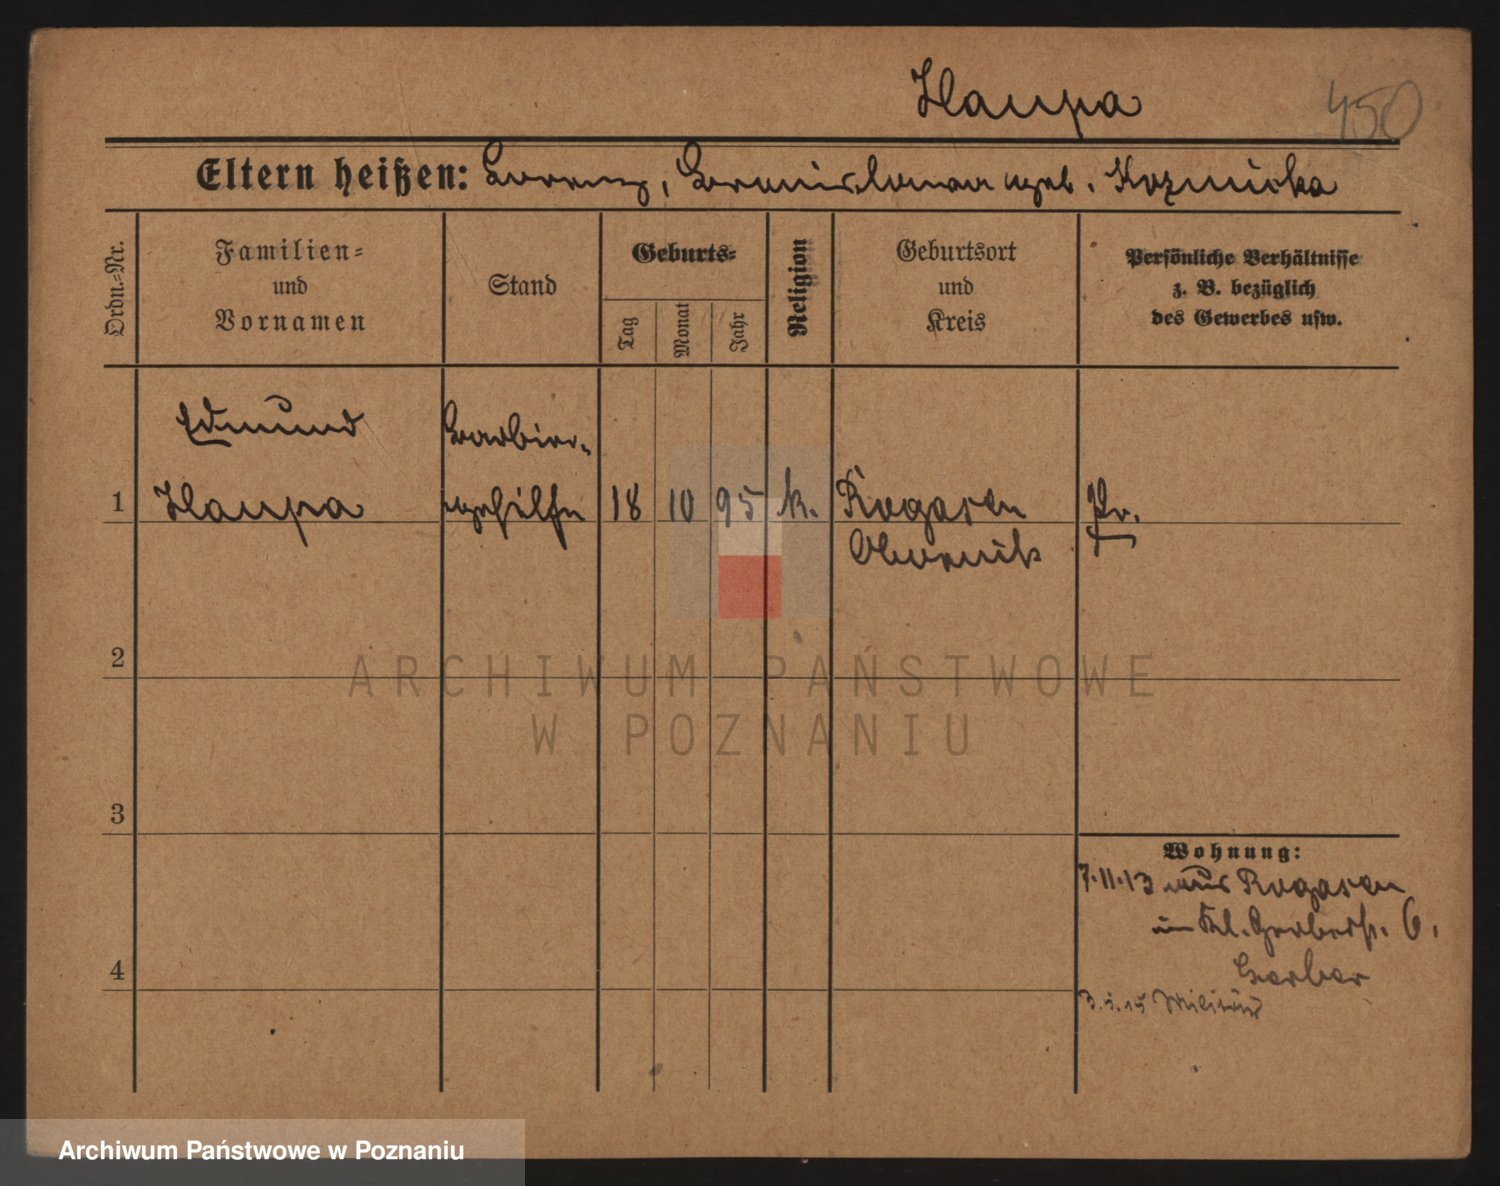 Haupa
450
Eltern heißen: Lorenz, geb. Kozmicka
Ordn.-Nr.
Familien- und Vornamen
Stand
Geburts-
Tag
Monat
Jahr
Religion
Geburtsort und Kreis
Persönliche Verhältnisse z. B. bezüglich des Gewerbes usw.
Edmund Barbier-
1 Haupa gehilfe 18 10 95 k. Rogasen Pr.
Obornik
2
ARCHIWUM PAŃSTWOWE
W POZNANIU
3
Wohnung:
7.11.13 aus Rogasen
in Kl. Gerberstr. 6.
4
Barbar
3.5.15 Militär
Archiwum Państwowe w Poznaniu